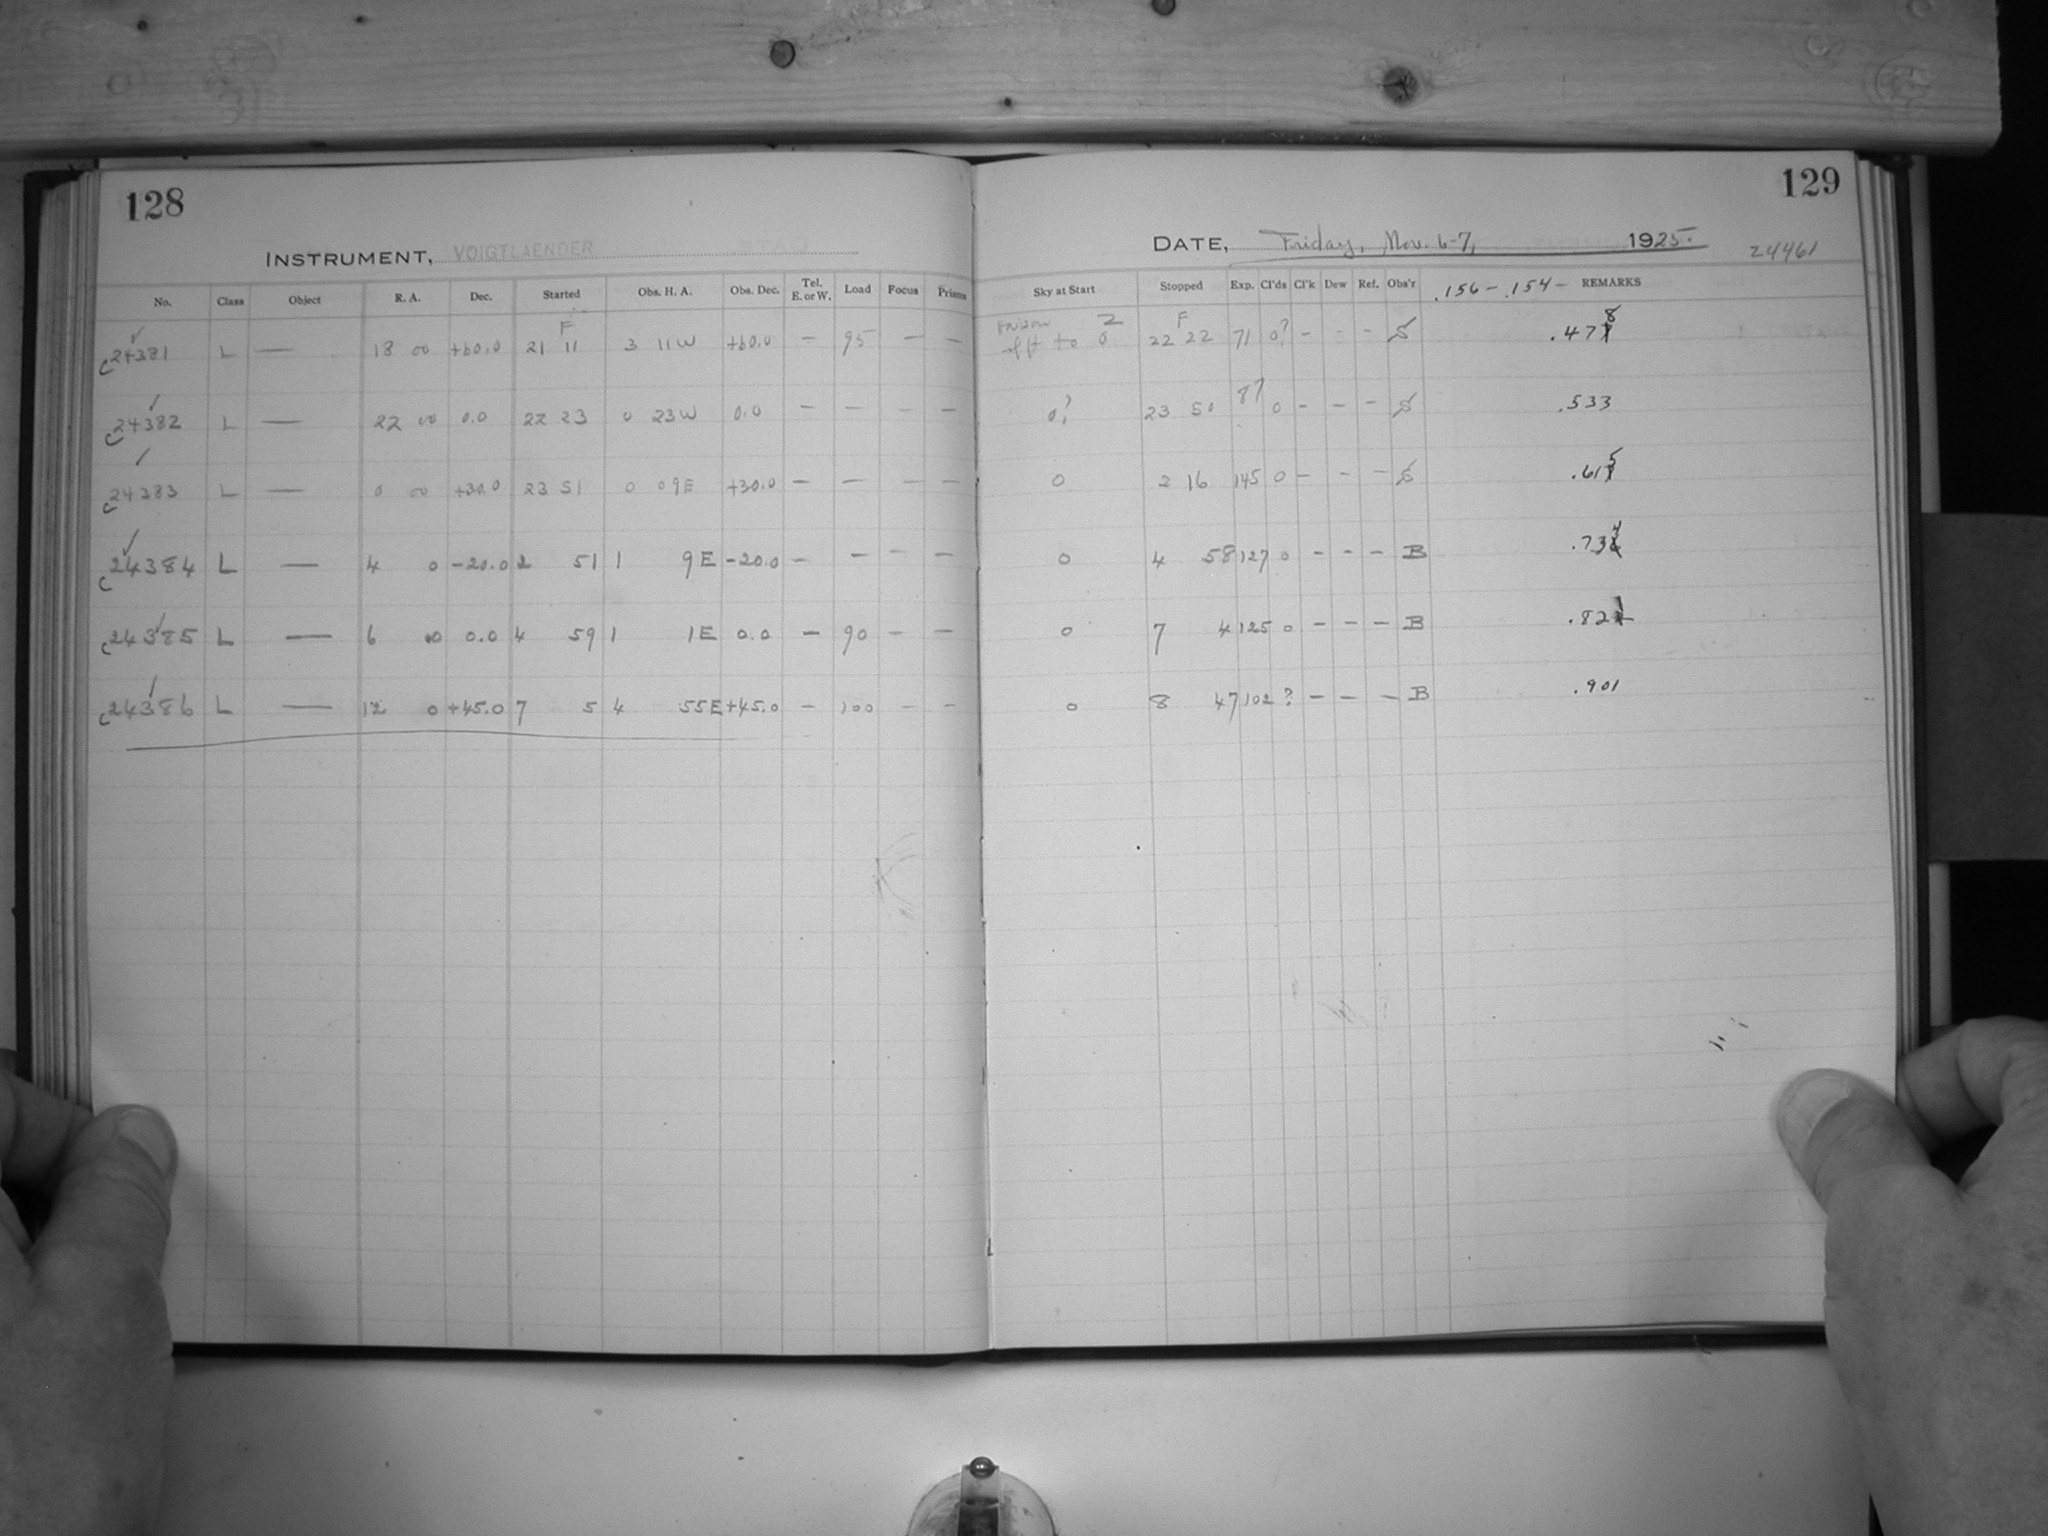 128
INSTRUMENT, VOIGTLAENDER
No. Class Object R. A. Dec. Started Obs. H. A. Obs. Dec. Tel. E. or W. Load Focus Prisms
F
C24381 L — 18 00 +60.0 21 11 3 11W +60.0 — 95 — —
C24382 L — 22 00 0.0 22 23 0 23W 0.0 — — — —
C24383 L — 0 00 +30.0 23 51 0 09E +30.0 — — — —
C24384 L — 4 0 -20.0 2 51 1 9E -20.0 — — — —
C24385 L — 6 0 0.0 4 59 1 1E 0.0 — 90 — —
C24386 L — 12 0 +45.0 7 5 4 55E +45.0 — 100 — —
129
DATE, Friday, Nov. 6-7, 1925.
24461
Sky at Start Stopped Exp. Cl'ds Cl'k Dew Ref. Obs'r .156 - .154 - REMARKS
2 F 8
to 0 22 22 71 0? - - - S .47
0? 23 50 87 0 - - - S .533
0 2 16 145 0 - - - S .615
0 4 58 127 0 - - - B .734
0 7 4 125 0 - - - B .821
0 8 47 102 ? - - - B .901